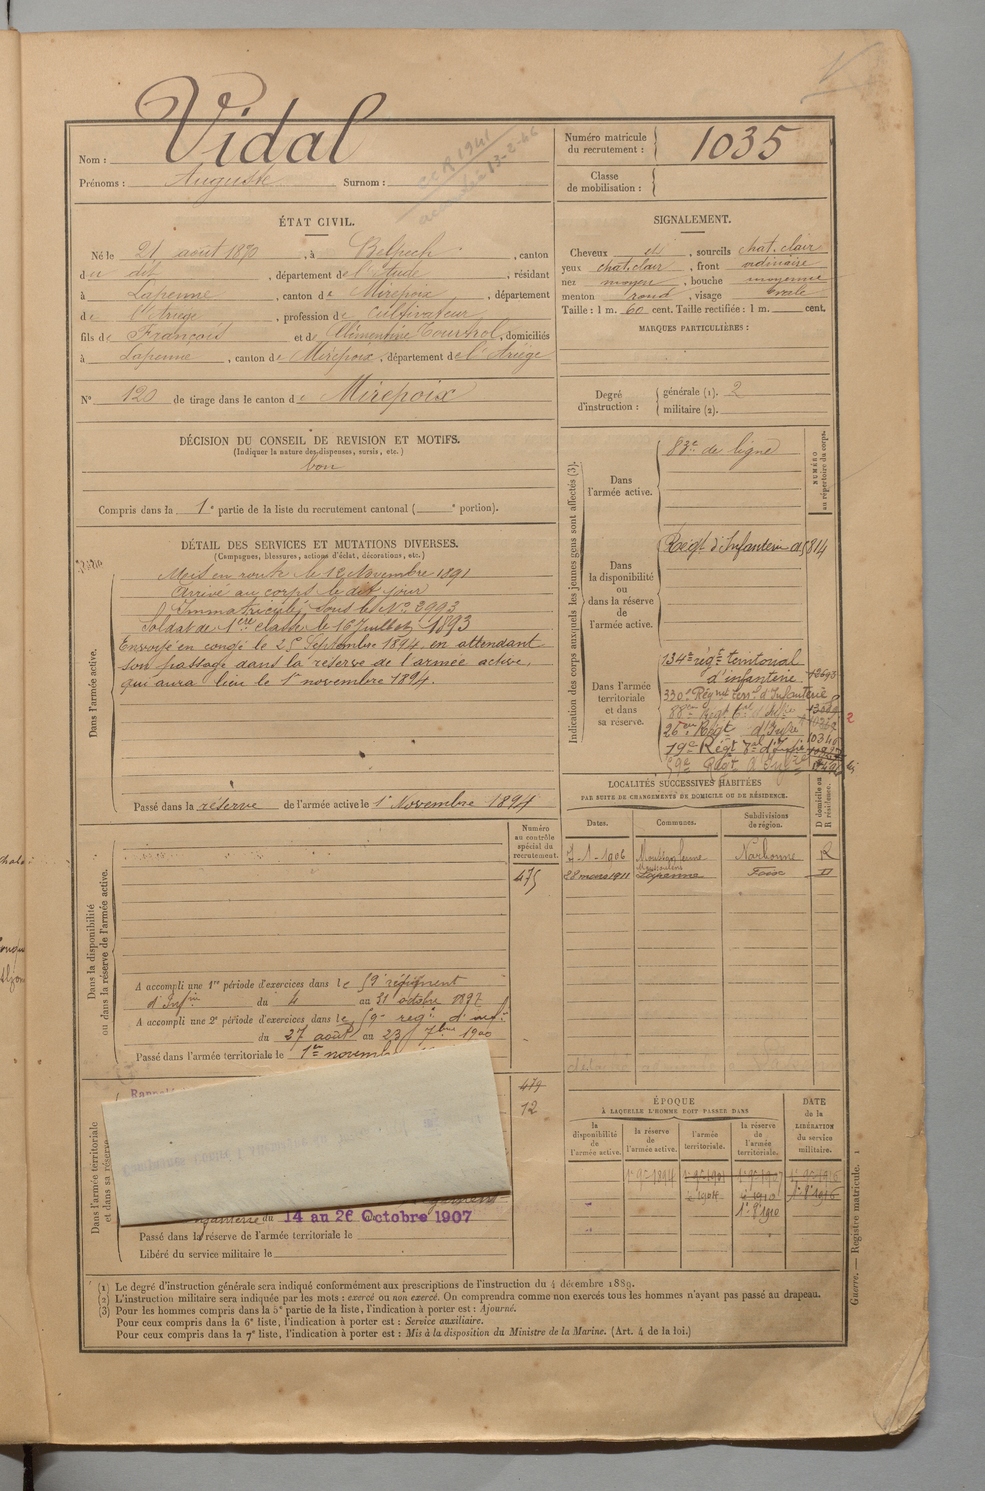 Nom : Vidal
Prénoms : Auguste Surnom :
CCR 1941
13-2-46
Numéro matricule du recrutement : 1035
Classe de mobilisation :
ÉTAT CIVIL.
Né le 21 août 1870, à Belpech, canton
du dit, département de l'Aude, résidant
à Lapenne, canton de Mirepoix, département
de l'Ariège, profession de Cultivateur
fils de François et de Clémentine Tourtrol, domiciliés
à Lapenne, canton de Mirepoix, département de l'Ariège
N° 120 de tirage dans le canton de Mirepoix
SIGNALEMENT.
Cheveux et, sourcils chat. clair
yeux chat. clair, front ordinaire
nez moyen, bouche moyenne
menton rond, visage ovale
Taille : 1 m. 60 cent. Taille rectifiée : 1 m. cent.
MARQUES PARTICULIÈRES :
Degré d'instruction : générale (1). 2
militaire (2).
DÉCISION DU CONSEIL DE REVISION ET MOTIFS.
(Indiquer la nature des dispenses, sursis, etc.)
bon
Compris dans la 1e partie de la liste du recrutement cantonal ( e portion).
DÉTAIL DES SERVICES ET MUTATIONS DIVERSES.
(Campagnes, blessures, actions d'éclat, décorations, etc.)
Dans l'armée active.
Mis en route le 12 Novembre 1891
Arrivé au corps le dit jour
Immatriculé sous le N° 2993
Soldat de 1ère classe le 16 Juillet 1893
Envoyé en congé le 25 Septembre 1894, en attendant
son passage dans la réserve de l'armée active,
qui aura lieu le 1er novembre 1894.
Passé dans la réserve de l'armée active le 1er Novembre 1894
Indication des corps auxquels les jeunes gens sont affectés (3).
NUMÉRO au répertoire du corps.
Dans l'armée active.
83e de ligne
Dans la disponibilité ou dans la réserve de l'armée active.
Régt d'Infanterie 814
Dans l'armée territoriale et dans sa réserve.
134e régt territorial
d'infanterie
330e Régmt terr. d'Infanterie
26e Régt d'Infie
LOCALITÉS SUCCESSIVES HABITÉES
PAR SUITE DE CHANGEMENTS DE DOMICILE OU DE RÉSIDENCE.
Dates. Communes. Subdivisions de région. D domicile ou R résidence.
7-1-1906 Narbonne R
28 mars 1911 Lapenne Foix D
Dans la disponibilité ou dans la réserve de l'armée active.
Numéro au contrôle spécial du recrutement.
475
A accompli une 1re période d'exercices dans le 59e régiment
d'Infie du 4 au 31 octobre 1897
A accompli une 2e période d'exercices dans le 59e regt d'inf.
du 27 août au 23 7bre 1900
Passé dans l'armée territoriale le 1er novembre
Dans l'armée territoriale et dans sa réserve
479
12
du 14 au 26 Octobre 1907
Passé dans la réserve de l'armée territoriale le
Libéré du service militaire le
ÉPOQUE
À LAQUELLE L'HOMME DOIT PASSER DANS
la disponibilité de l'armée active.
la réserve de l'armée active.
l'armée territoriale.
la réserve de l'armée territoriale.
DATE de la LIBÉRATION du service militaire.
1er 9bre 1894 1er 9bre 1901 1er 9bre 1907 1er 9bre 1916
(1) Le degré d'instruction générale sera indiqué conformément aux prescriptions de l'instruction du 4 décembre 1889.
(2) L'instruction militaire sera indiquée par les mots : exercé ou non exercé. On comprendra comme non exercés tous les hommes n'ayant pas passé au drapeau.
(3) Pour les hommes compris dans la 5e partie de la liste, l'indication à porter est : Ajourné.
Pour ceux compris dans la 6e liste, l'indication à porter est : Service auxiliaire.
Pour ceux compris dans la 7e liste, l'indication à porter est : Mis à la disposition du Ministre de la Marine. (Art. 4 de la loi.)
Guerre. — Registre matricule. 1